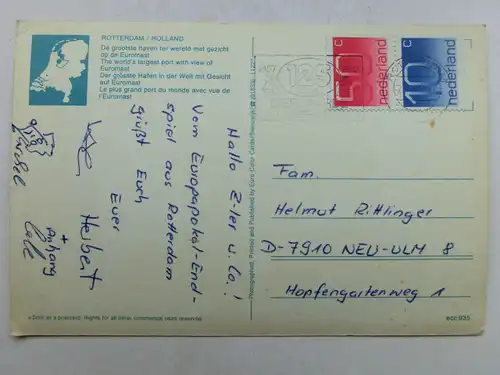 ROTTERDAM / HOLLAND
De grootste haven ter wereld met gezicht
op de Euromast
The world's largest port with view of
Euromast
Der größte Hafen in der Welt mit Gesicht
auf Euromast
Le plus grand port du monde avec vue de
l'Euromast
Hallo E-ler u. Co.!
Vom Europapokal-End-
spiel aus Rotterdam
grüßt Euch
Euer
Herbert
+
Anhang
50 c
nederland
10 c
nederland
Fam.
Helmut Rittlinger
D-7910 NEU-ULM 8
Hopfengartenweg 1
Photographed, Printed and Published by Euro Color Cards
ecc 935